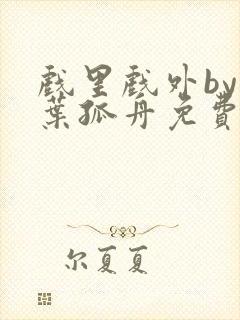 戲里戲外by一
葉孤舟免費
尔夏夏